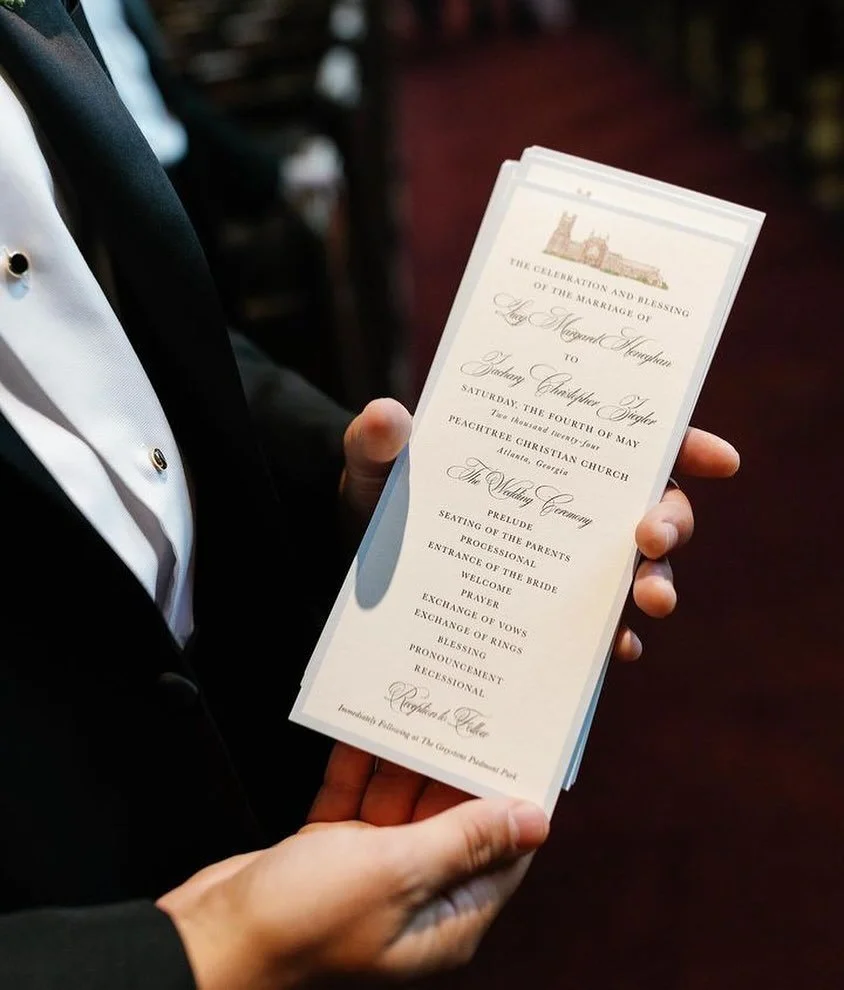 THE CELEBRATION AND BLESSING
OF THE MARRIAGE OF
Lucy Margaret Heneghan
TO
Zachary Christopher Ziegler
SATURDAY, THE FOURTH OF MAY
Two thousand twenty-four
PEACHTREE CHRISTIAN CHURCH
Atlanta, Georgia
The Wedding Ceremony
PRELUDE
SEATING OF THE PARENTS
PROCESSIONAL
ENTRANCE OF THE BRIDE
WELCOME
PRAYER
EXCHANGE OF VOWS
EXCHANGE OF RINGS
BLESSING
PRONOUNCEMENT
RECESSIONAL
Reception to Follow
Immediately Following at The Greystone Piedmont Park